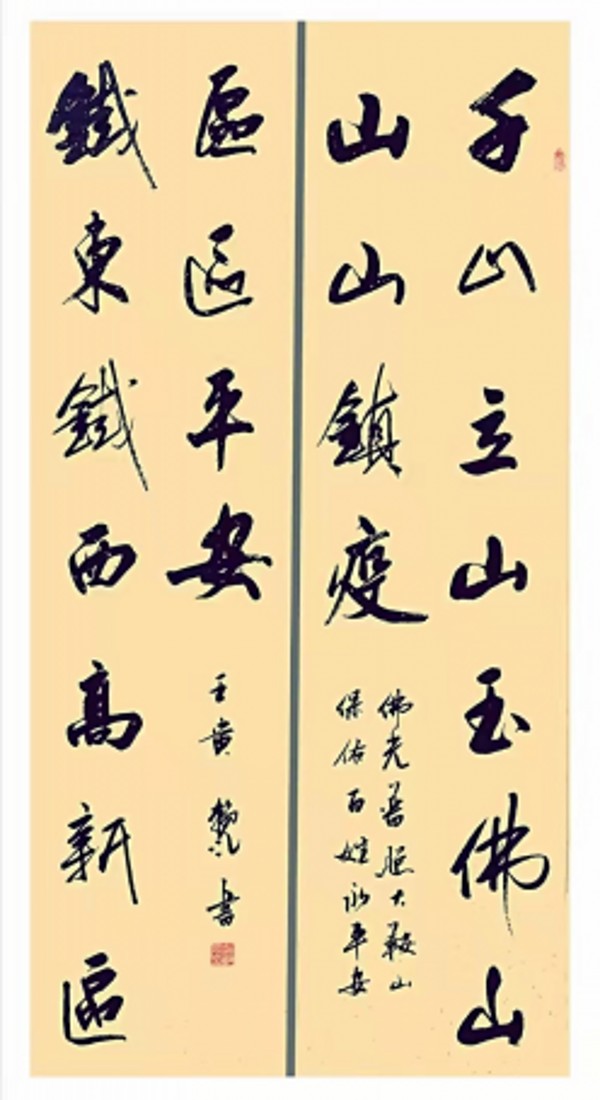 千山立山玉佛山
山山鎮疫
佛光普照大鞍山
保佑百姓永平安
鐵東鐵西高新區
區區平安
壬寅 書